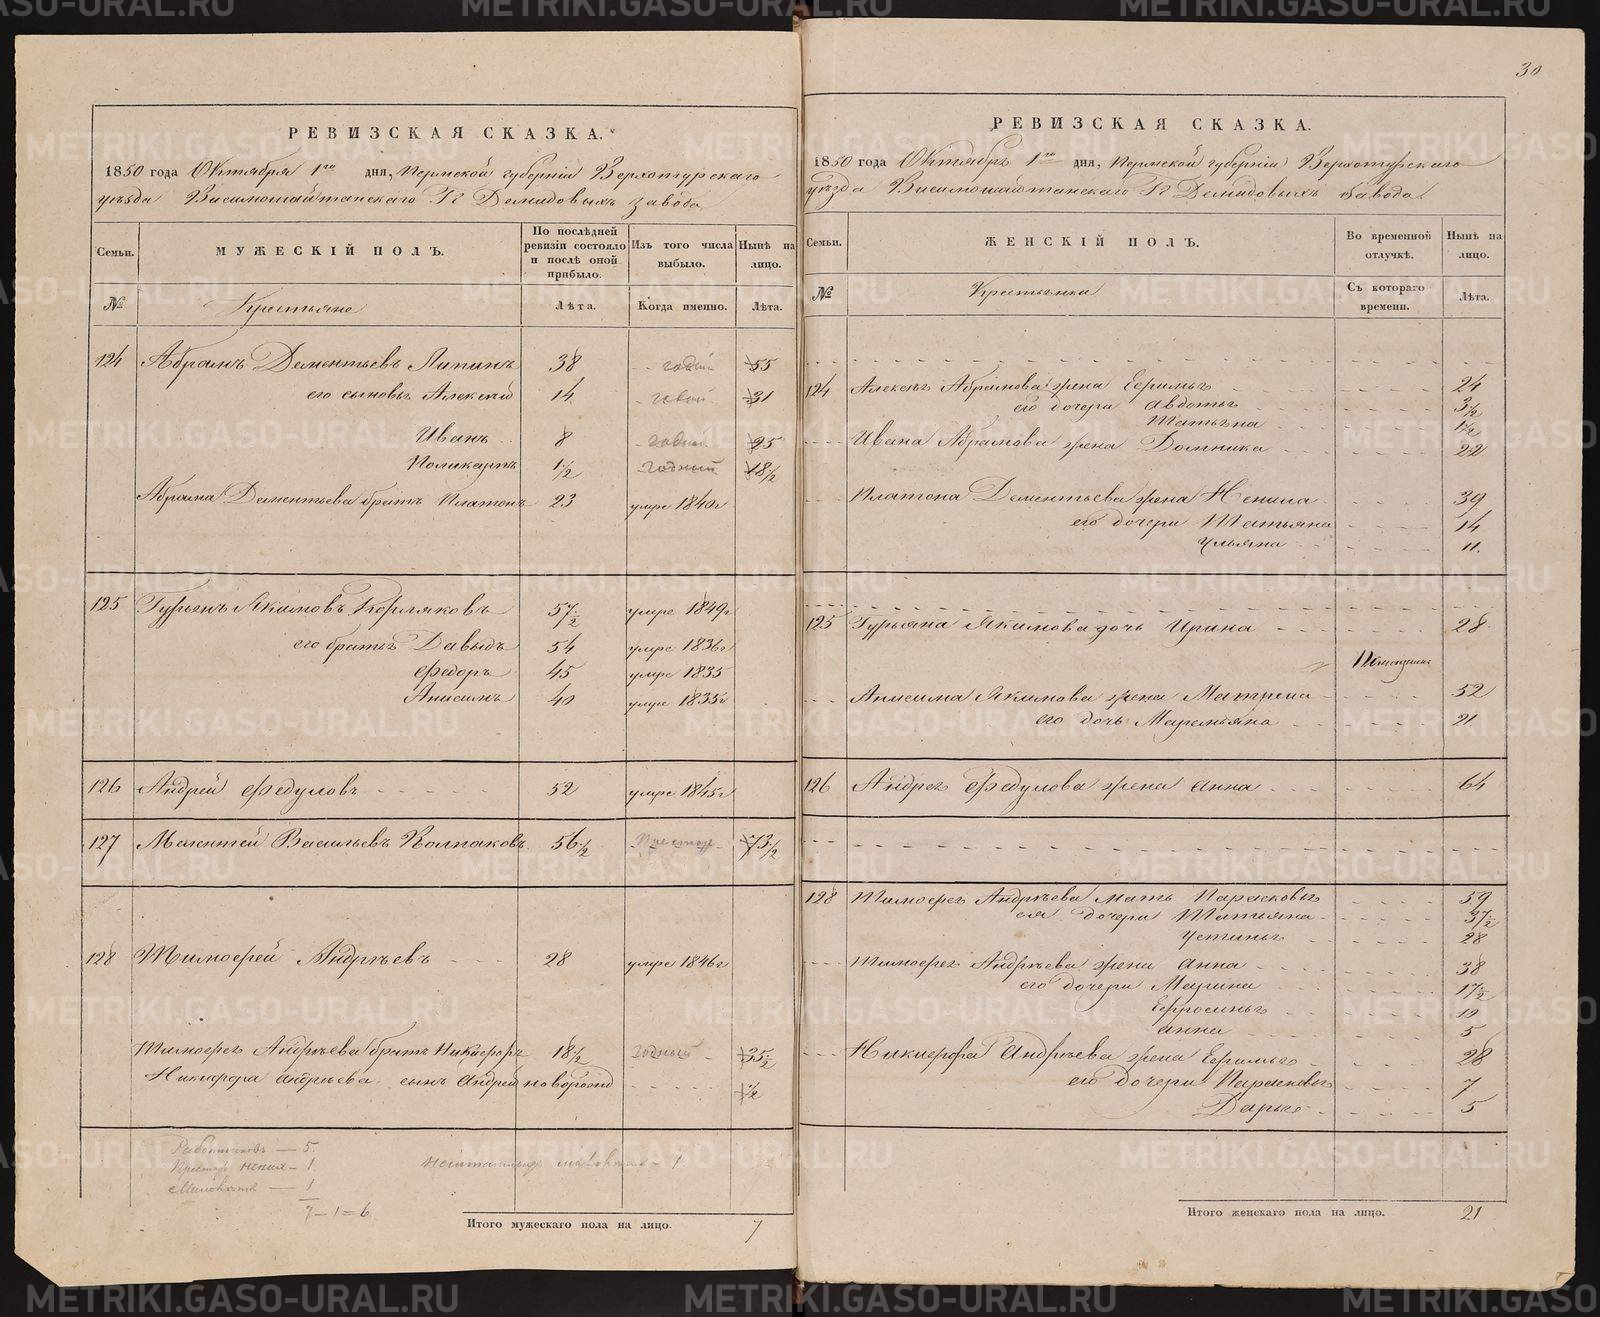 РЕВИЗСКАЯ СКАЗКА.
1850 года Октября 1го дня, Пермской губернии Верхотурскаго
уѣзда Висимошайтанскаго Гг Демидовыхъ завода
Семьи.
МУЖЕСКІЙ ПОЛЪ.
По послѣдней ревизіи состояло и послѣ оной прибыло.
Изъ того числа выбыло.
Нынѣ на лицо.
№
Крестьяне
Лѣта.
Когда именно.
Лѣта.
124 Абрамъ Дементьевъ Липинъ 38 годный 55
его сыновья Алексѣй 14 годный 31
Иванъ 8 годный 25
Поликарпъ 1 1/2 годный 18 1/2
Абрама Дементьева братъ Платонъ 23 умре 1840г
125 Гурьянъ Якимовъ Корляковъ 57 1/2 умре 1849г
его братья Давыдъ 54 умре 1836г
Федоръ 45 умре 1835
Анисимъ 40 умре 1835г
126 Андрей Федуловъ 52 умре 1845г
127 Мелентей Васильевъ Колпаковъ 56 1/2 73 1/2
128 Тимофей Андрѣевъ 28 умре 1846г
Тимофея Андрѣева братъ Никифоръ 18 1/2 годный 35 1/2
Никифора Андрѣева сынъ Андрей новорожд 1/2
Работниковъ — 5.
Престар. — 1.
Малолѣтъ — 1
7 — 1 = 6.
Итого мужескаго пола на лицо. 7
30
РЕВИЗСКАЯ СКАЗКА.
1850 года Октября 1го дня, Пермской губерніи Верхотурскаго
уѣзда Висимошайтанскаго Гг Демидовыхъ завода.
Семьи.
ЖЕНСКІЙ ПОЛЪ.
Во временной отлучкѣ.
Нынѣ на лицо.
№
Крестьянки
Съ котораго времени.
Лѣта.
124 Алексея Абрамова жена Ефимья 24
его дочери Авдотья 3 1/2
Татьяна 1 1/2
Ивана Абрамова жена Домника 22
Платона Дементьева жена Ненила 39
его дочери Татьяна 14
Ульяна 11.
125 Гурьяна Якимова дочь Ирина 28
Анисима Якимова жена Матрена 52
его дочь Маремьяна 21
126 Андрея Федулова жена Анна 64
128 Тимофея Андрѣева мать Парасковья 59
ея дочери Татьяна 37 1/2
Устинья 28
Тимофея Андрѣева жена Анна 38
его дочери Марина 17 1/2
Ефросинья 12
Анна 5
Никифора Андрѣева жена Ефимья 28
его дочери Парасковья 7
Дарья 5
Итого женскаго пола на лицо. 21
METRIKI.GASO-URAL.RU